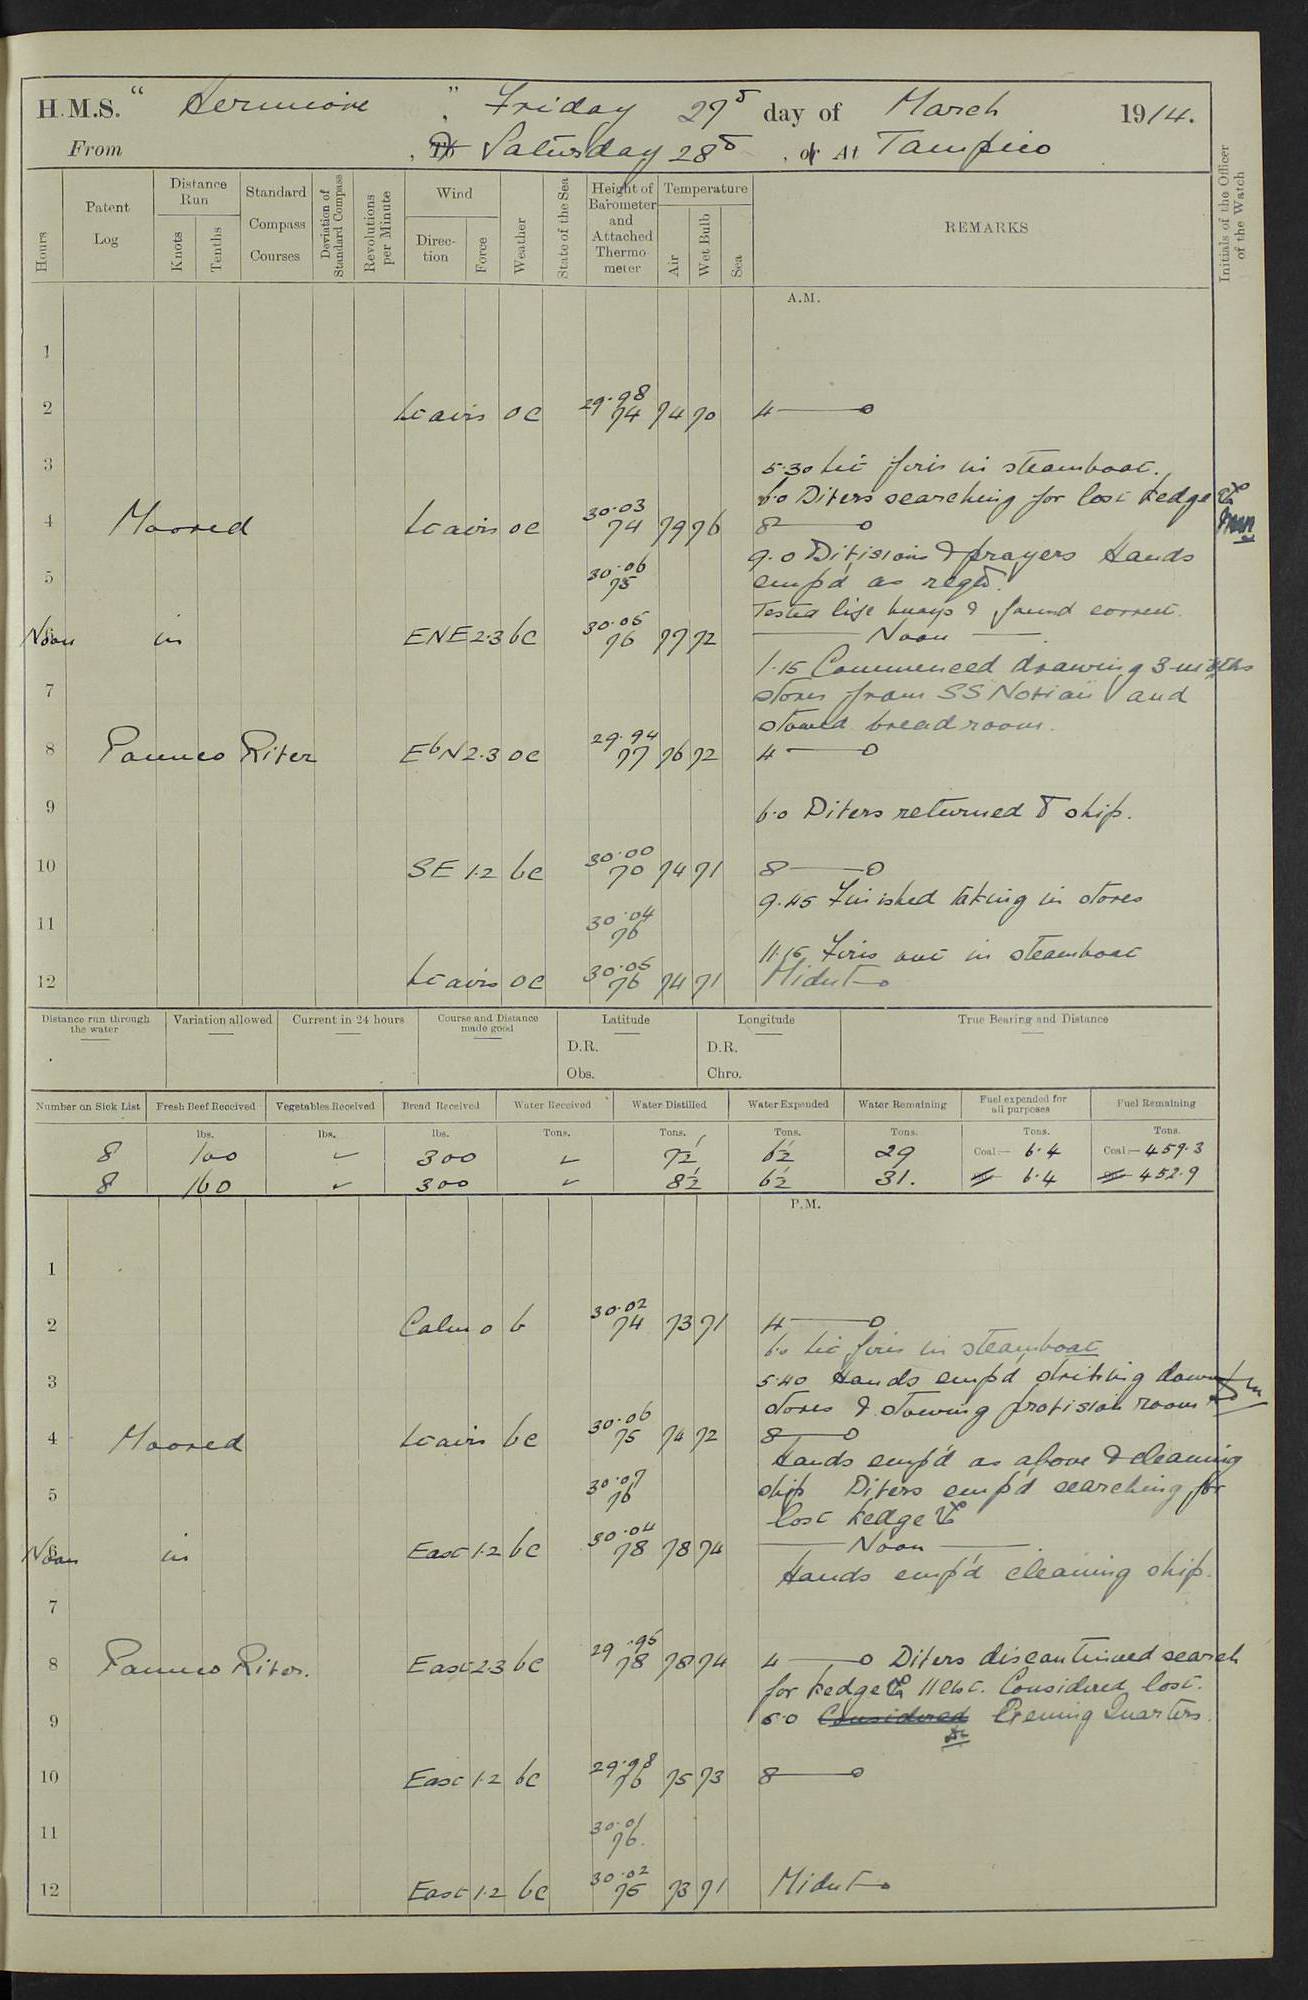 H.M.S. "Hermione", Friday 27th day of March 1914.
From , To Saturday 28th , or At Tampico
Hours
Patent Log
Distance Run
Knots
Tenths
Standard Compass Courses
Deviation of Standard Compass
Revolutions per Minute
Wind
Direction
Force
Weather
State of the Sea
Height of Barometer and Attached Thermometer
Temperature
Air
Wet Bulb
Sea
REMARKS
Initials of the Officer of the Watch
A.M.
1
2 Lt airs oc 29.98 74 74 70 4
3 5.30 Lit fires in steamboat.
6.0 Divers searching for lost kedge &c
4 Moored Lt airs oc 30.03 74 79 76 8
9.0 Divisions & prayers Hands
5 30.06 75 emp'd as reqd.
Tested life buoys & found correct.
Noon in ENE 2.3 bc 30.05 76 77 72 Noon
1.15 Commenced drawing 3 months
7 stores from SS Norian and
stowed bread room.
8 Panuco River EbN 2.3 oc 29.94 77 76 72 4
9 6.0 Divers returned to ship.
10 SE 1.2 bc 30.00 70 74 71 8
9.45 Finished taking in stores
11 30.04 76
11.15 Fires out in steamboat
12 Lt airs oc 30.05 76 74 71 Midnt
Distance run through the water
Variation allowed
Current in 24 hours
Course and Distance made good
Latitude
Longitude
True Bearing and Distance
D.R. D.R.
Obs. Chro.
Number on Sick List
Fresh Beef Received
Vegetables Received
Bread Received
Water Received
Water Distilled
Water Expended
Water Remaining
Fuel expended for all purposes
Fuel Remaining
lbs. lbs. lbs. Tons. Tons. Tons. Tons. Tons. Tons.
8 100 ✓ 300 ✓ 7½ 6½ 29 Coal:— 6.4 Coal:— 459.3
8 160 ✓ 300 ✓ 8½ 6½ 31. 6.4 452.9
P.M.
1
2 Calm 0 b 30.02 74 73 71 4
6.0 Lit fires in steamboat
3 5.40 Hands emp'd striking down
stores & stowing provision room
4 Moored Lt airs bc 30.06 75 74 72 8
Hands emp'd as above & cleaning
5 30.07 76 ship Divers emp'd searching for
lost kedge &c
Noon in East 1.2 bc 30.04 78 78 74 Noon
Hands emp'd cleaning ship.
7
8 Panuco River. East 2.3 bc 29.95 78 78 74 4 Divers discontinued search
for kedge &c 11 cwt. Considered lost.
9 5.0 Considered Evening Quarters.
10 East 1.2 bc 29.98 76 75 73 8
11 30.01 76.
12 East 1.2 bc 30.02 75 73 71 Midnt